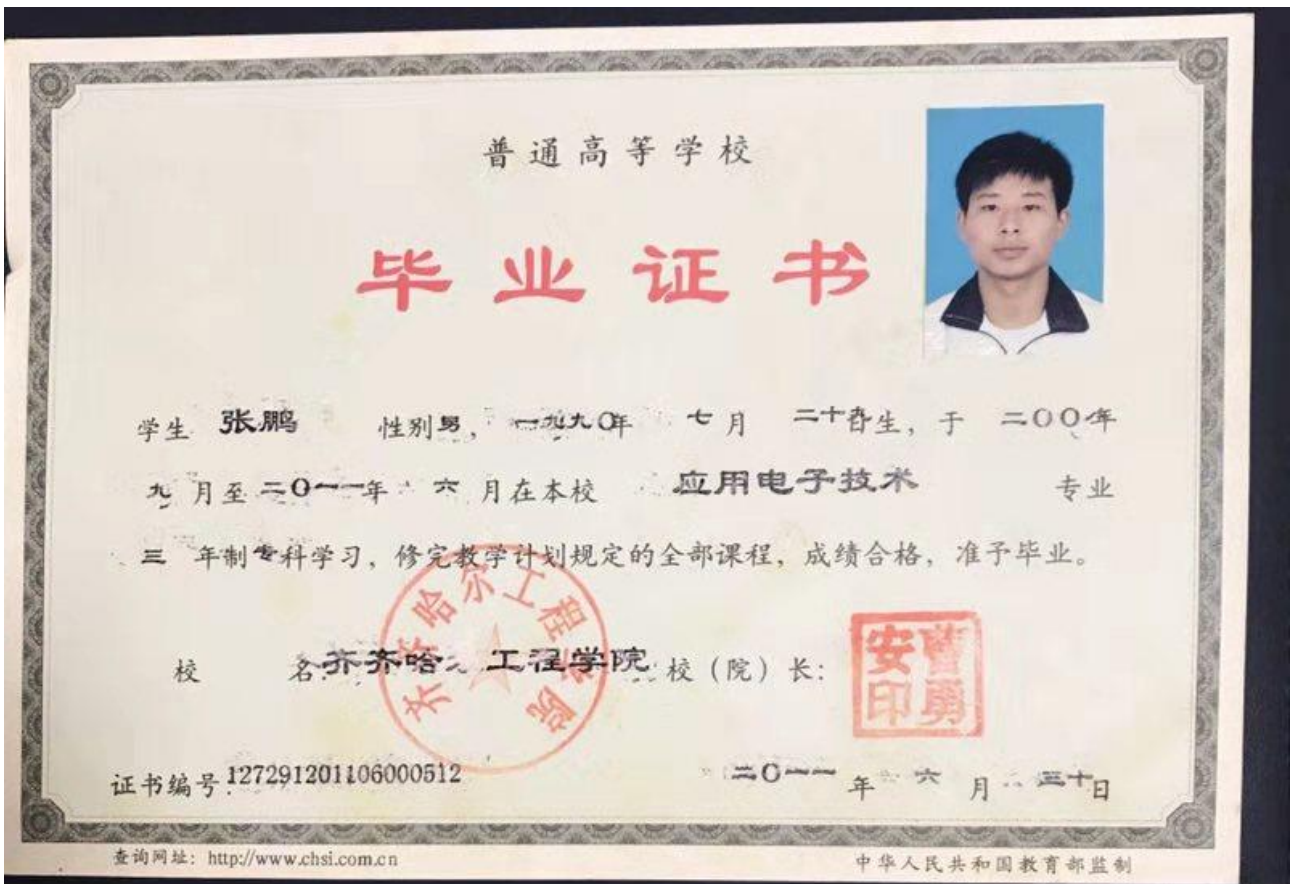 普通高等学校
毕业证书
学生 张鹏 性别男，一九九〇年 七月 二十日生，于 二〇〇 年
九 月至 二〇一一年 六 月在本校 应用电子技术 专业
三 年制专科学习，修完教学计划规定的全部课程，成绩合格，准予毕业。
校 名：齐齐哈 工程学院 校（院）长：
齐齐哈尔工程学院
曹勇安印
证书编号：127291201106000512 二〇一一 年 六 月 三十日
查询网址：http://www.chsi.com.cn 中华人民共和国教育部监制